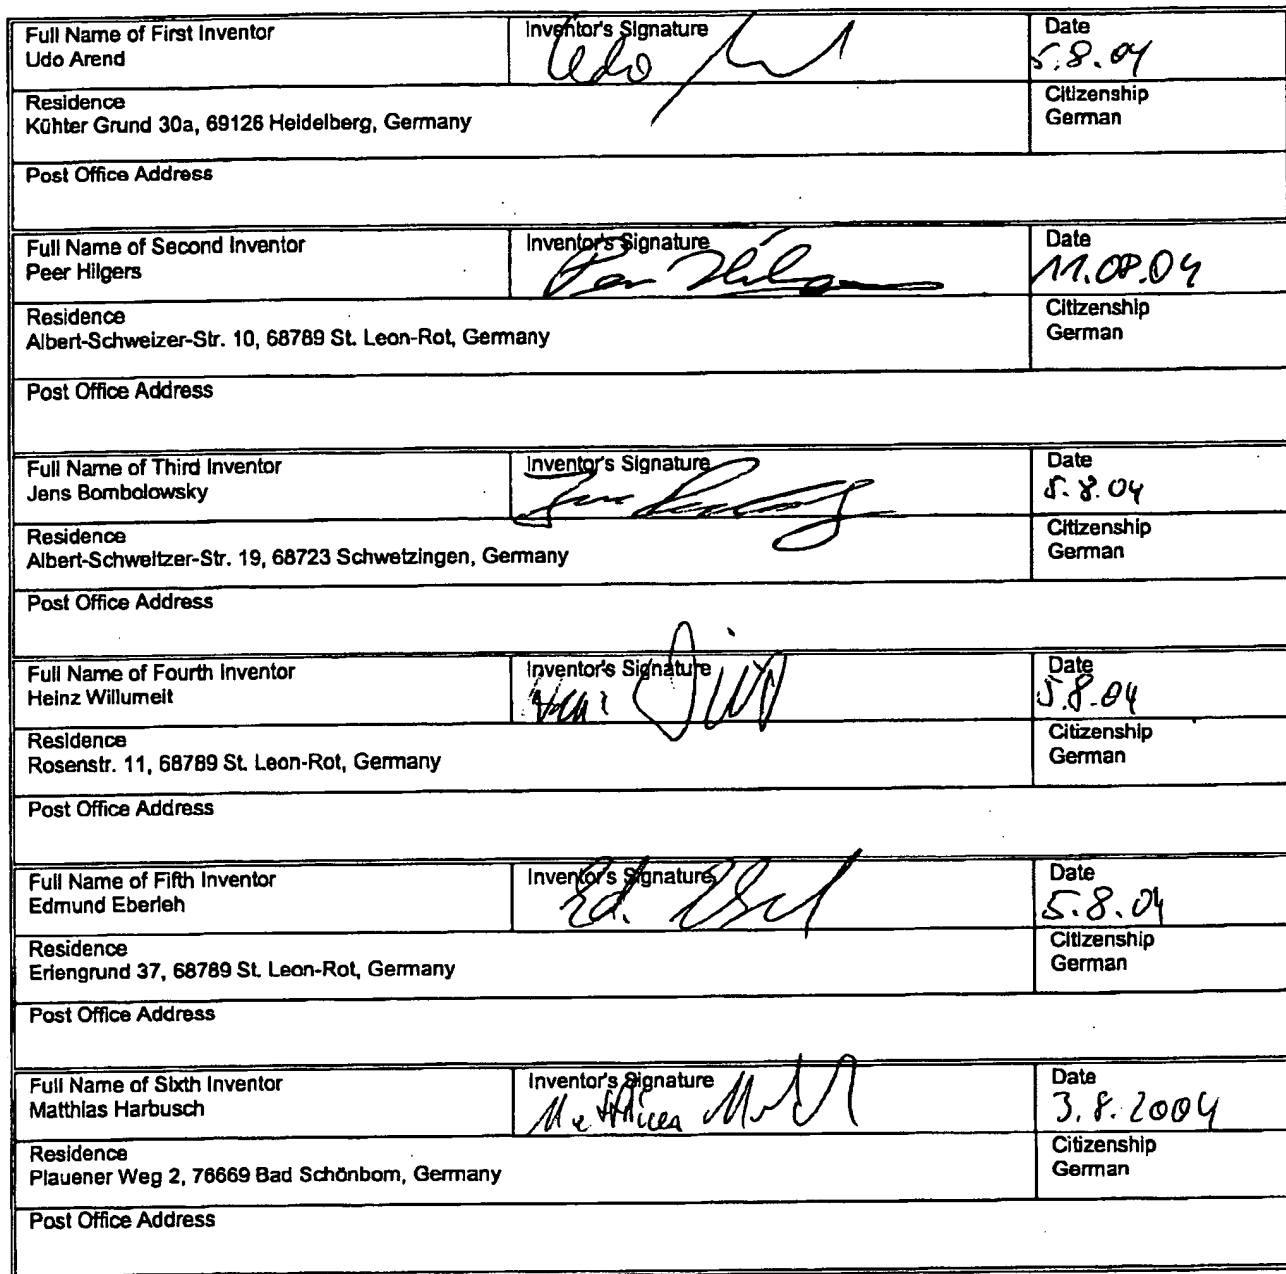 Full Name of First Inventor
Udo Arend
Inventor's Signature
Udo
Date
5.8.04
Residence
Kühter Grund 30a, 69126 Heidelberg, Germany
Citizenship
German
Post Office Address
Full Name of Second Inventor
Peer Hilgers
Inventor's Signature
Date
11.08.04
Residence
Albert-Schweizer-Str. 10, 68789 St. Leon-Rot, Germany
Citizenship
German
Post Office Address
Full Name of Third Inventor
Jens Bombolowsky
Inventor's Signature
Date
5.8.04
Residence
Albert-Schweitzer-Str. 19, 68723 Schwetzingen, Germany
Citizenship
German
Post Office Address
Full Name of Fourth Inventor
Heinz Willumeit
Inventor's Signature
Date
5.8.04
Residence
Rosenstr. 11, 68789 St. Leon-Rot, Germany
Citizenship
German
Post Office Address
Full Name of Fifth Inventor
Edmund Eberleh
Inventor's Signature
Ed.
Date
5.8.04
Residence
Erlengrund 37, 68789 St. Leon-Rot, Germany
Citizenship
German
Post Office Address
Full Name of Sixth Inventor
Matthias Harbusch
Inventor's Signature
Matthias
Date
3.8.2004
Residence
Plauener Weg 2, 76669 Bad Schönborn, Germany
Citizenship
German
Post Office Address